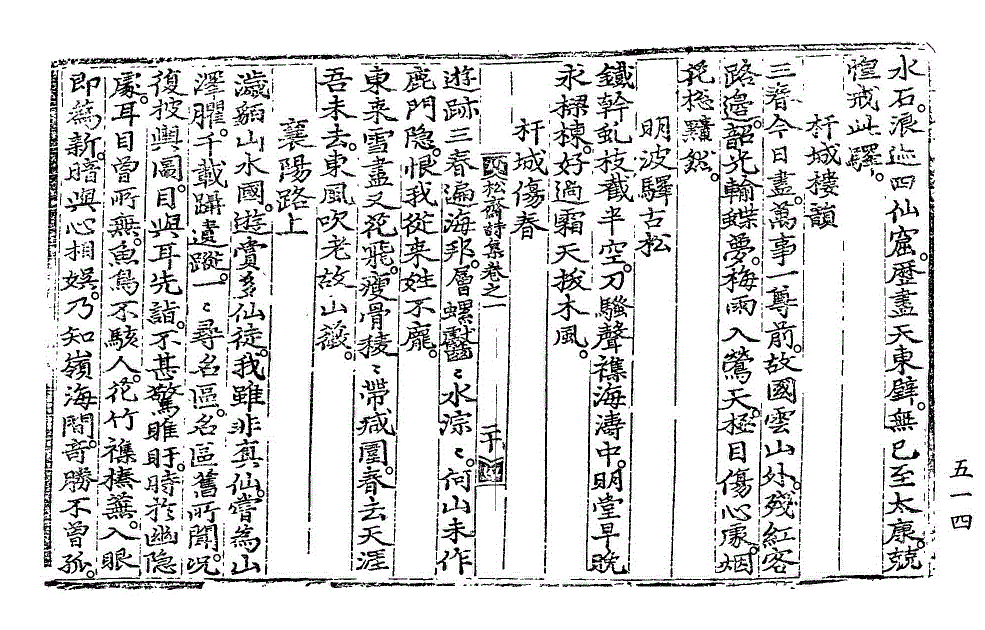 水石浪迹四仙窟。歷盡天東壁。無已至太康。兢
惶戒此驛。
杆城樓韻
三春今日盡。萬事一尊前。故國雲山外。殘紅客
路邊。韶光輸蝶夢。梅雨入鶯天。極目傷心處。烟
花總黯然。
明波驛古松
鐵幹虬枝截半空。刀騷聲襍海濤中。明堂早晩
求樑棟。好過霜天拔木風。
杆城傷春
松齋詩集卷之一
二十
遊跡三春遍海邦。層螺矗矗水淙淙。何山未作
鹿門隐。恨我從来姓不龐。
東来雪盡又花飛。瘦骨稜稜帶减圍。春去天涯
吾未去。東風吹老故山薇。
襄陽路上
濊貊山水國。遊賞多仙徒。我雖非眞仙。嘗爲山
澤臞。千載躡遺蹤。一一尋名區。名區舊所聞。况
復披輿圖。目與耳先詣。不甚驚睢盱。時於幽隐
處。耳目曾所無。魚鳥不駭人。花竹襍榛蕪。入眼
即爲新。暗與心相娱。乃知嶺海間。奇勝不曾孤。
五一四